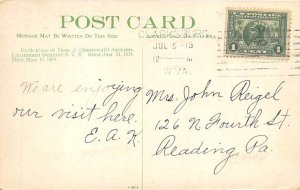 POST CARD
MESSAGE MAY BE WRITTEN ON THIS SIDE
Birth place of Thos. J. (Stonewall) Jackson,
Lieutenant General A. C. S. Born Jan. 21, 1824,
Died May 10, 1863
We are enjoying
our visit here.
E. A. K.
CLARKSBURG,
JUL 5 13
12 M
W.VA.
1
Mrs. John Reigel
126 N Fourth St.
Reading, Pa.